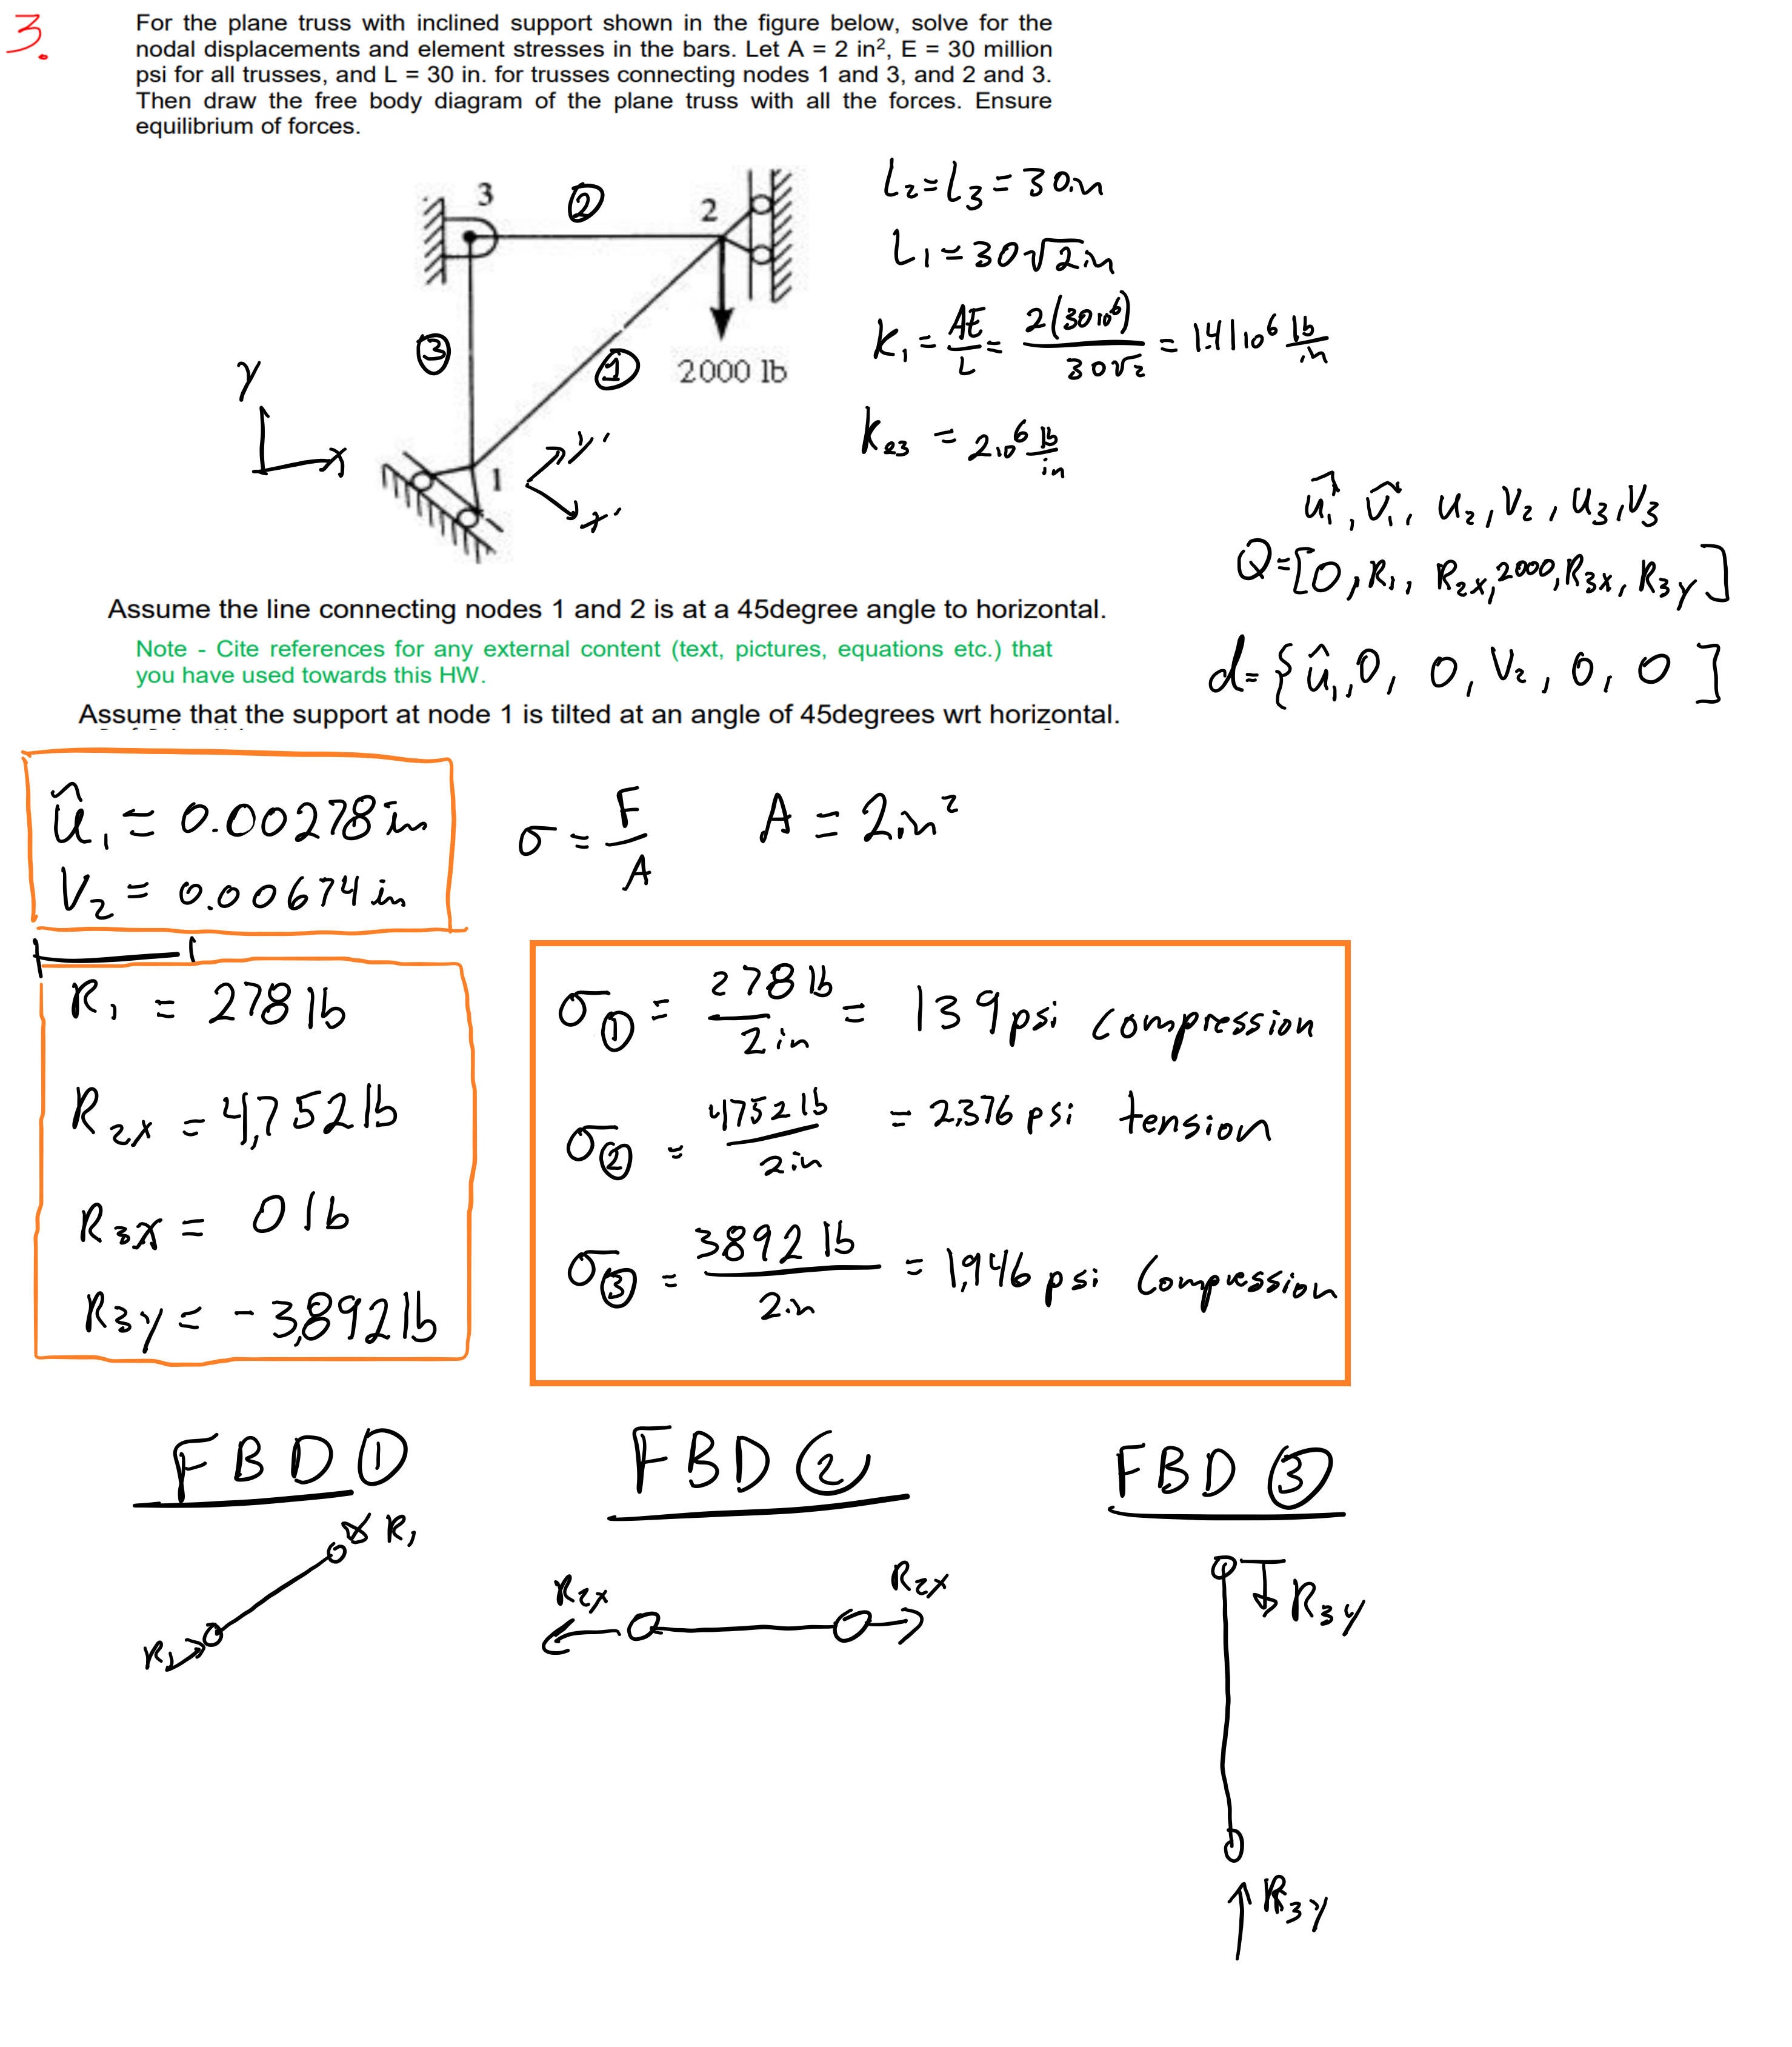 3.
For the plane truss with inclined support shown in the figure below, solve for the
nodal displacements and element stresses in the bars. Let A = 2 in², E = 30 million
psi for all trusses, and L = 30 in. for trusses connecting nodes 1 and 3, and 2 and 3.
Then draw the free body diagram of the plane truss with all the forces. Ensure
equilibrium of forces.
3
②
2
③
①
2000 lb
1
Y
x
y'
x'
L₂ = L₃ = 30in
L₁ = 30√2 in
K₁ = AE/L = 2(30 10⁶)/30√2 = 1.41 10⁶ lb/in
k₂₃ = 2 10⁶ lb/in
û₁, v̂₁, u₂, v₂, u₃, v₃
Q = [0, R₁, R₂ₓ, 2000, R₃ₓ, R₃y]
d = {û₁, 0, 0, V₂, 0, 0]
Assume the line connecting nodes 1 and 2 is at a 45degree angle to horizontal.
Note - Cite references for any external content (text, pictures, equations etc.) that
you have used towards this HW.
Assume that the support at node 1 is tilted at an angle of 45degrees wrt horizontal.
û₁ = 0.00278 in
V₂ = 0.00674 in
σ = F/A
A = 2in²
R₁ = 278 lb
R₂ₓ = 4,752 lb
R₃ₓ = 0 lb
R₃y = -3,892 lb
σ① = 278 lb/2 in = 139 psi compression
σ② = 4752 lb/2 in = 2,376 psi tension
σ③ = 3892 lb/2 in = 1,946 psi Compression
FBD ①
FBD ②
FBD ③
R₁
R₁
R₂ₓ
R₂ₓ
R₃y
R₃y